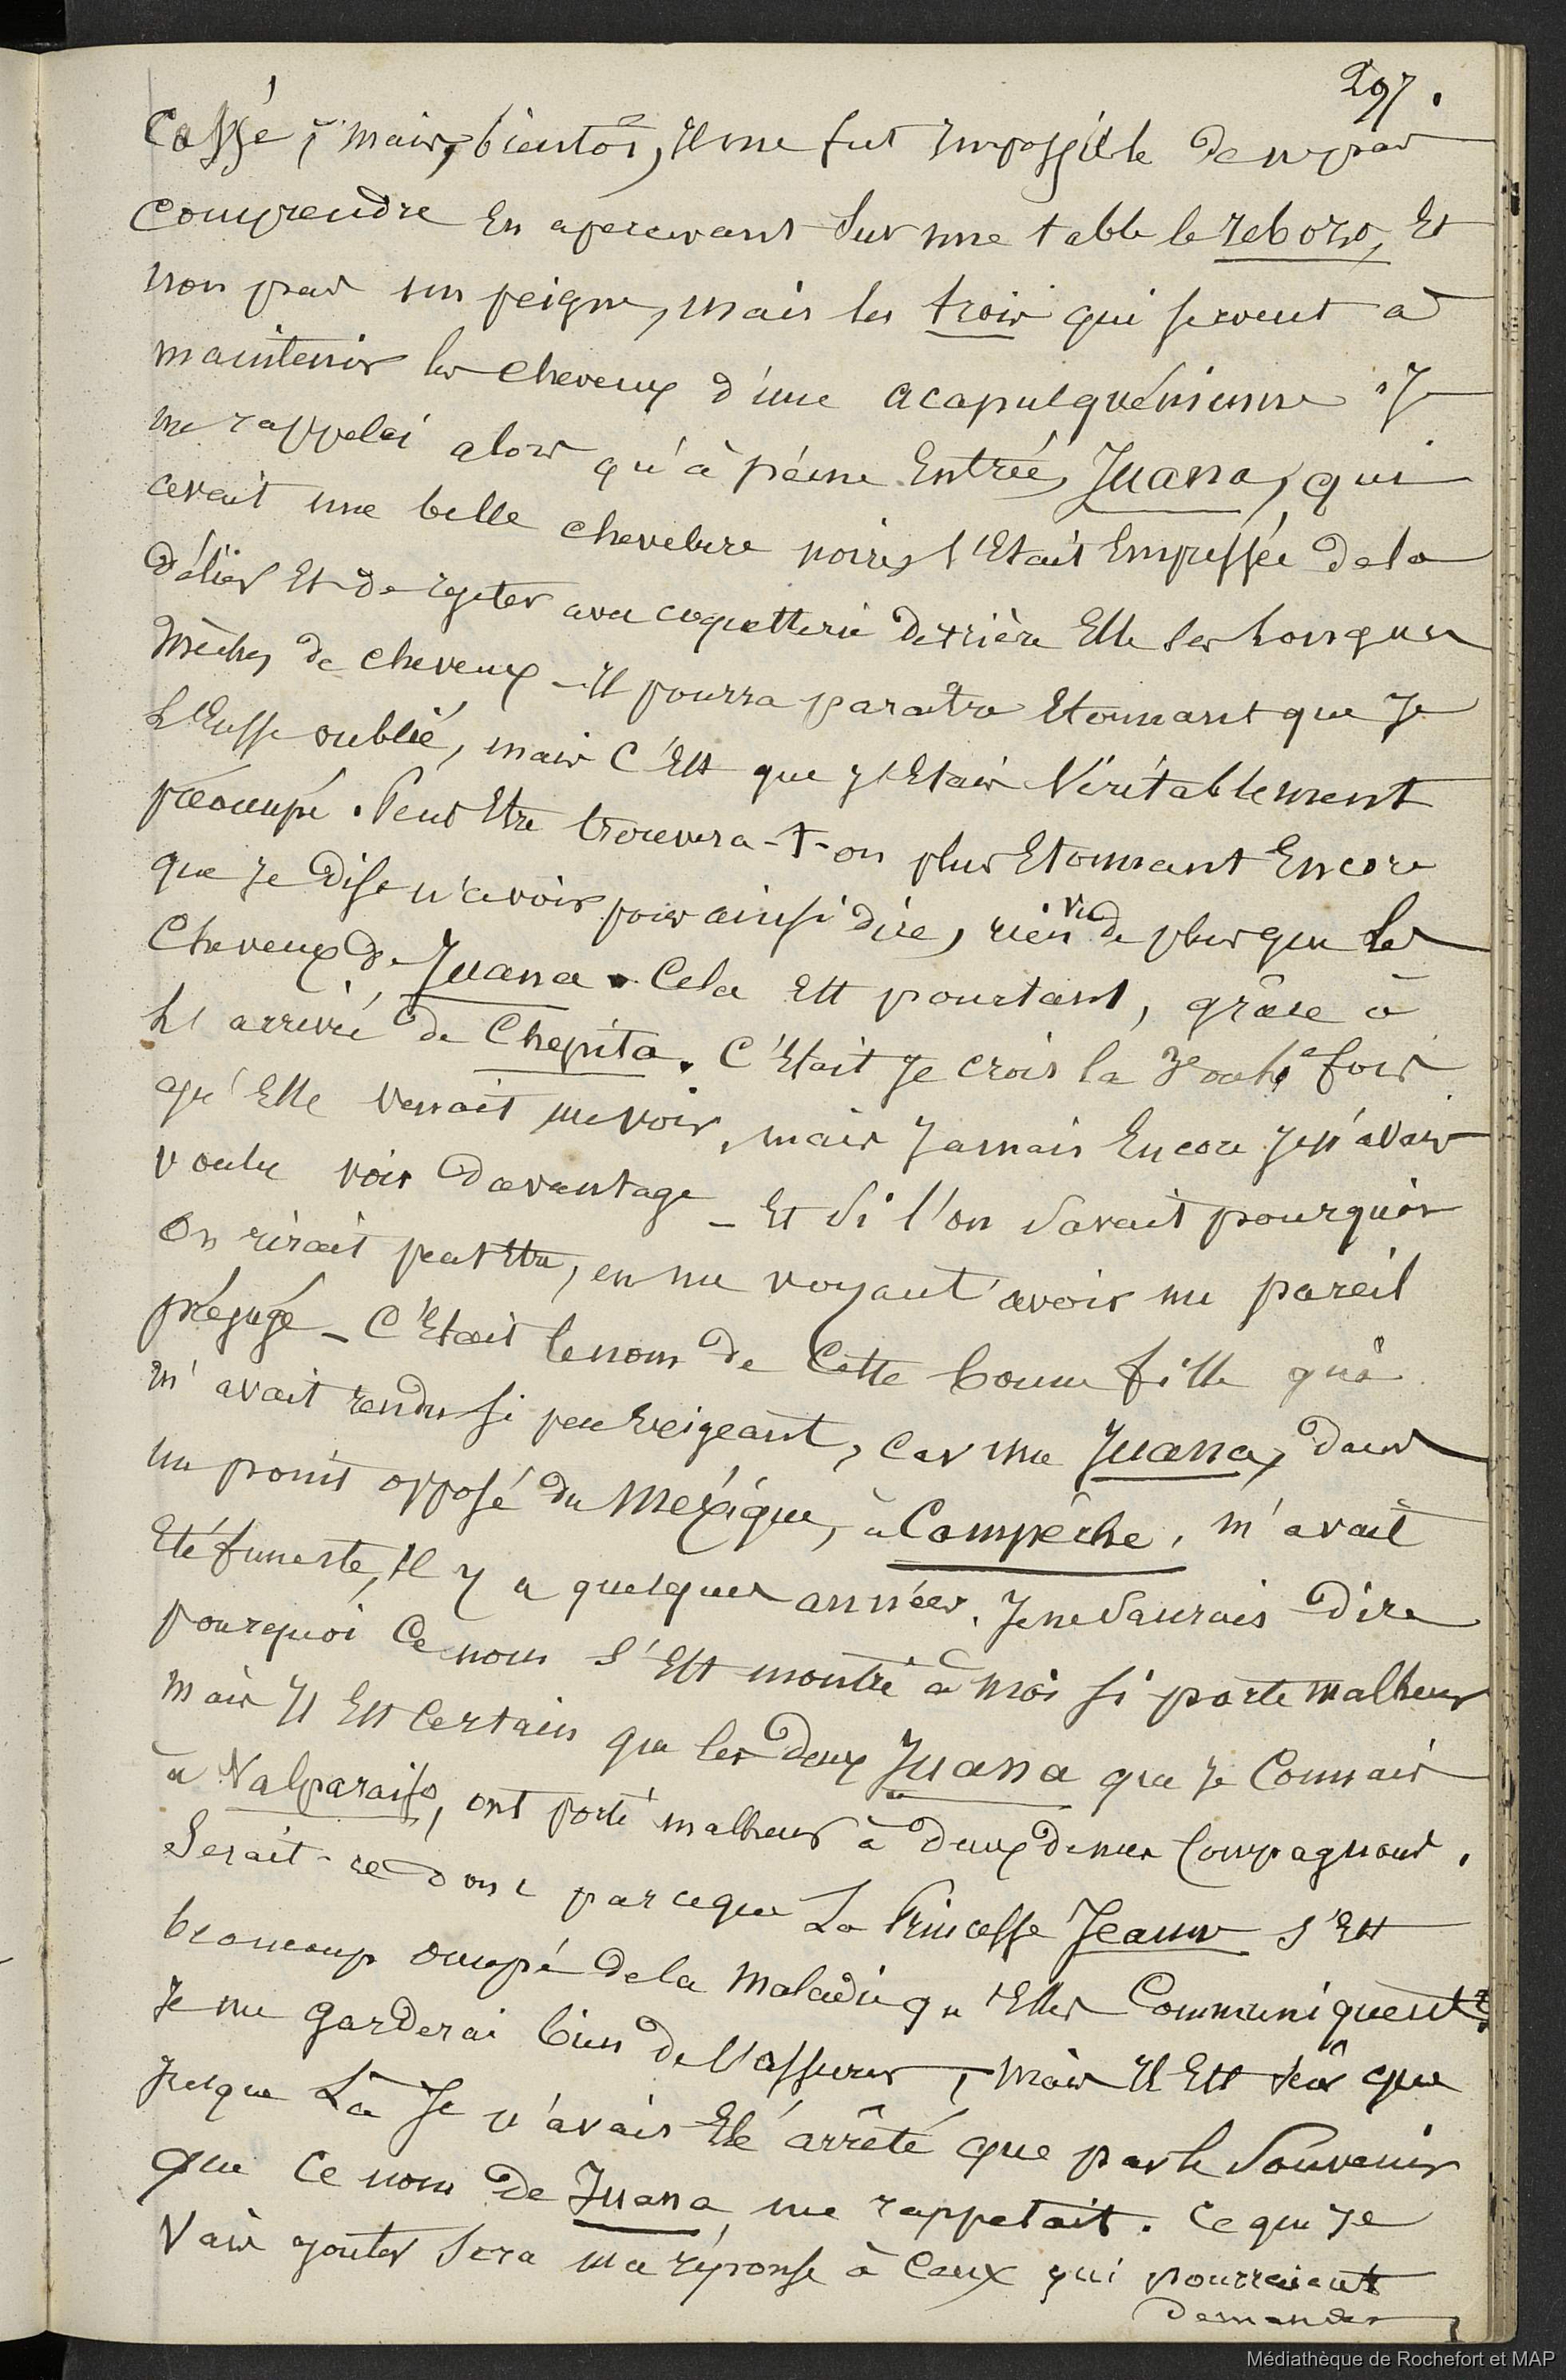 297.
Cassé ; mais, bientôt, il me fut impossible de ne pas
comprendre En apercevant sur une table le rebozo, Et
non pas un peigne, mais les trois qui servent à
maintenir les cheveux d'une acapulquénienne. Je
me rappelai alors qu'à peine Entrée, Juana, qui
avait une belle chevelure noire, s'Etait Empressée de la
délier Et de rejeter avec coquetterie derrière Elle ses longues
mèches de cheveux - Il pourra paraître Etonnant que Je
l'Eusse oublié, mais c'Est que j'Etais Véritablement
préoccupé. Peut Etre trouvera-t-on plus Etonnant Encore
que Je dise n'avoir pour ainsi dire, rien vu de plus que les
Cheveux de Juana. Cela Est pourtant, grâce à
l'arrivée de Chepita. C'Etait Je crois la 3e fois
qu'Elle venait me voir, mais Jamais Encore Je n'avais
voulu voir davantage - Et si l'on savait pourquoi
on rirait peut Etre, en me voyant avoir un pareil
préjugé - C'Etait le nom de Cette bonne fille qui
m'avait rendu si peu Exigeant, car une Juana, dans
un point opposé du Mexique, à Campêche, m'avait
Eté funeste, Il y a quelques années. Je ne saurais dire
pourquoi Ce nom s'Est montré à moi si porte malheur
mais Il Est Certain que les deux Juana que Je Connais
à Valparaiso, ont porté malheur à deux de mes Compagnons.
Serait-ce donc parceque La Princesse Jeanne s'Est
beaucoup occupé de la Maladie qu'Elles Communiquent ?
Je me garderai bien de l'assurer, mais Il Est sûr que
jusque Là Je n'avais Eté arrêté que par le Souvenir
que Ce nom de Juana me rappelait. Ce que Je
Vais ajouter sera ma réponse à Ceux qui pourraient
demander
Médiathèque de Rochefort et MAP